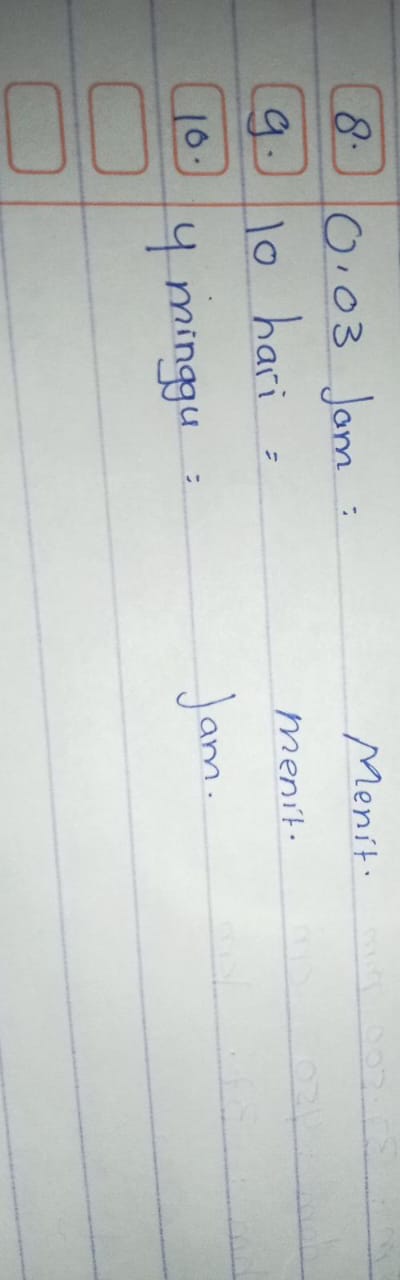 8. 0.03 Jam = Menit.
9. 10 hari = menit.
10. 4 minggu = Jam.